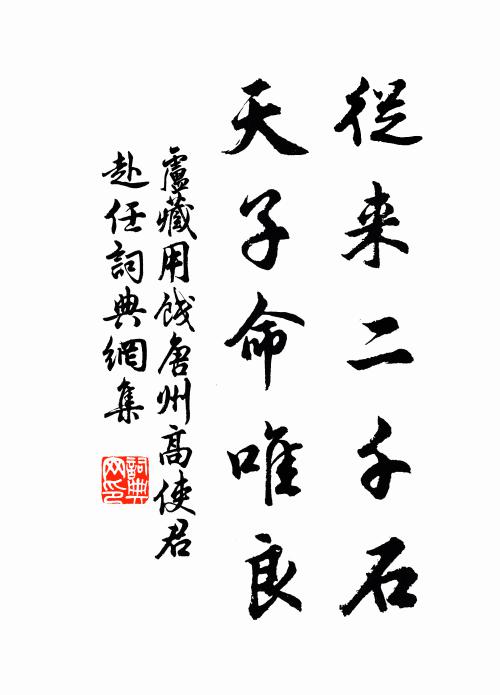 從来二千石
天子命唯良
盧藏用餞唐州高使君
赴任詞典網集
詞典
网印